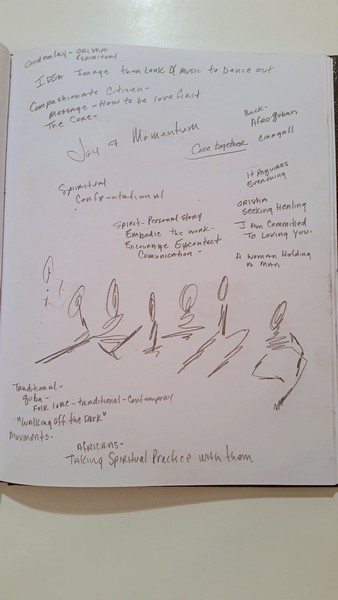 Condemlay - orisha
spiritual
IDEA Image then Look of Music to Dance out
Compashionate Citizen -
Message - How to be love first
The Core -
Joy & Momentum
Back -
Afro guban
Come together
It Requires
Everything
Spiritual
Confrontational
orisha
seeking Healing
Spirit - Personal story
Embodie the work -
Encourage Eyecontact
Comunication -
I Am Committed
To Loving you.
A woman Holding
a man
Traditional -
quba -
Folk lore - traditional - Contemporary
"Walking off the Dark"
Movments -
Africans -
Taking Spiritual Practice with them